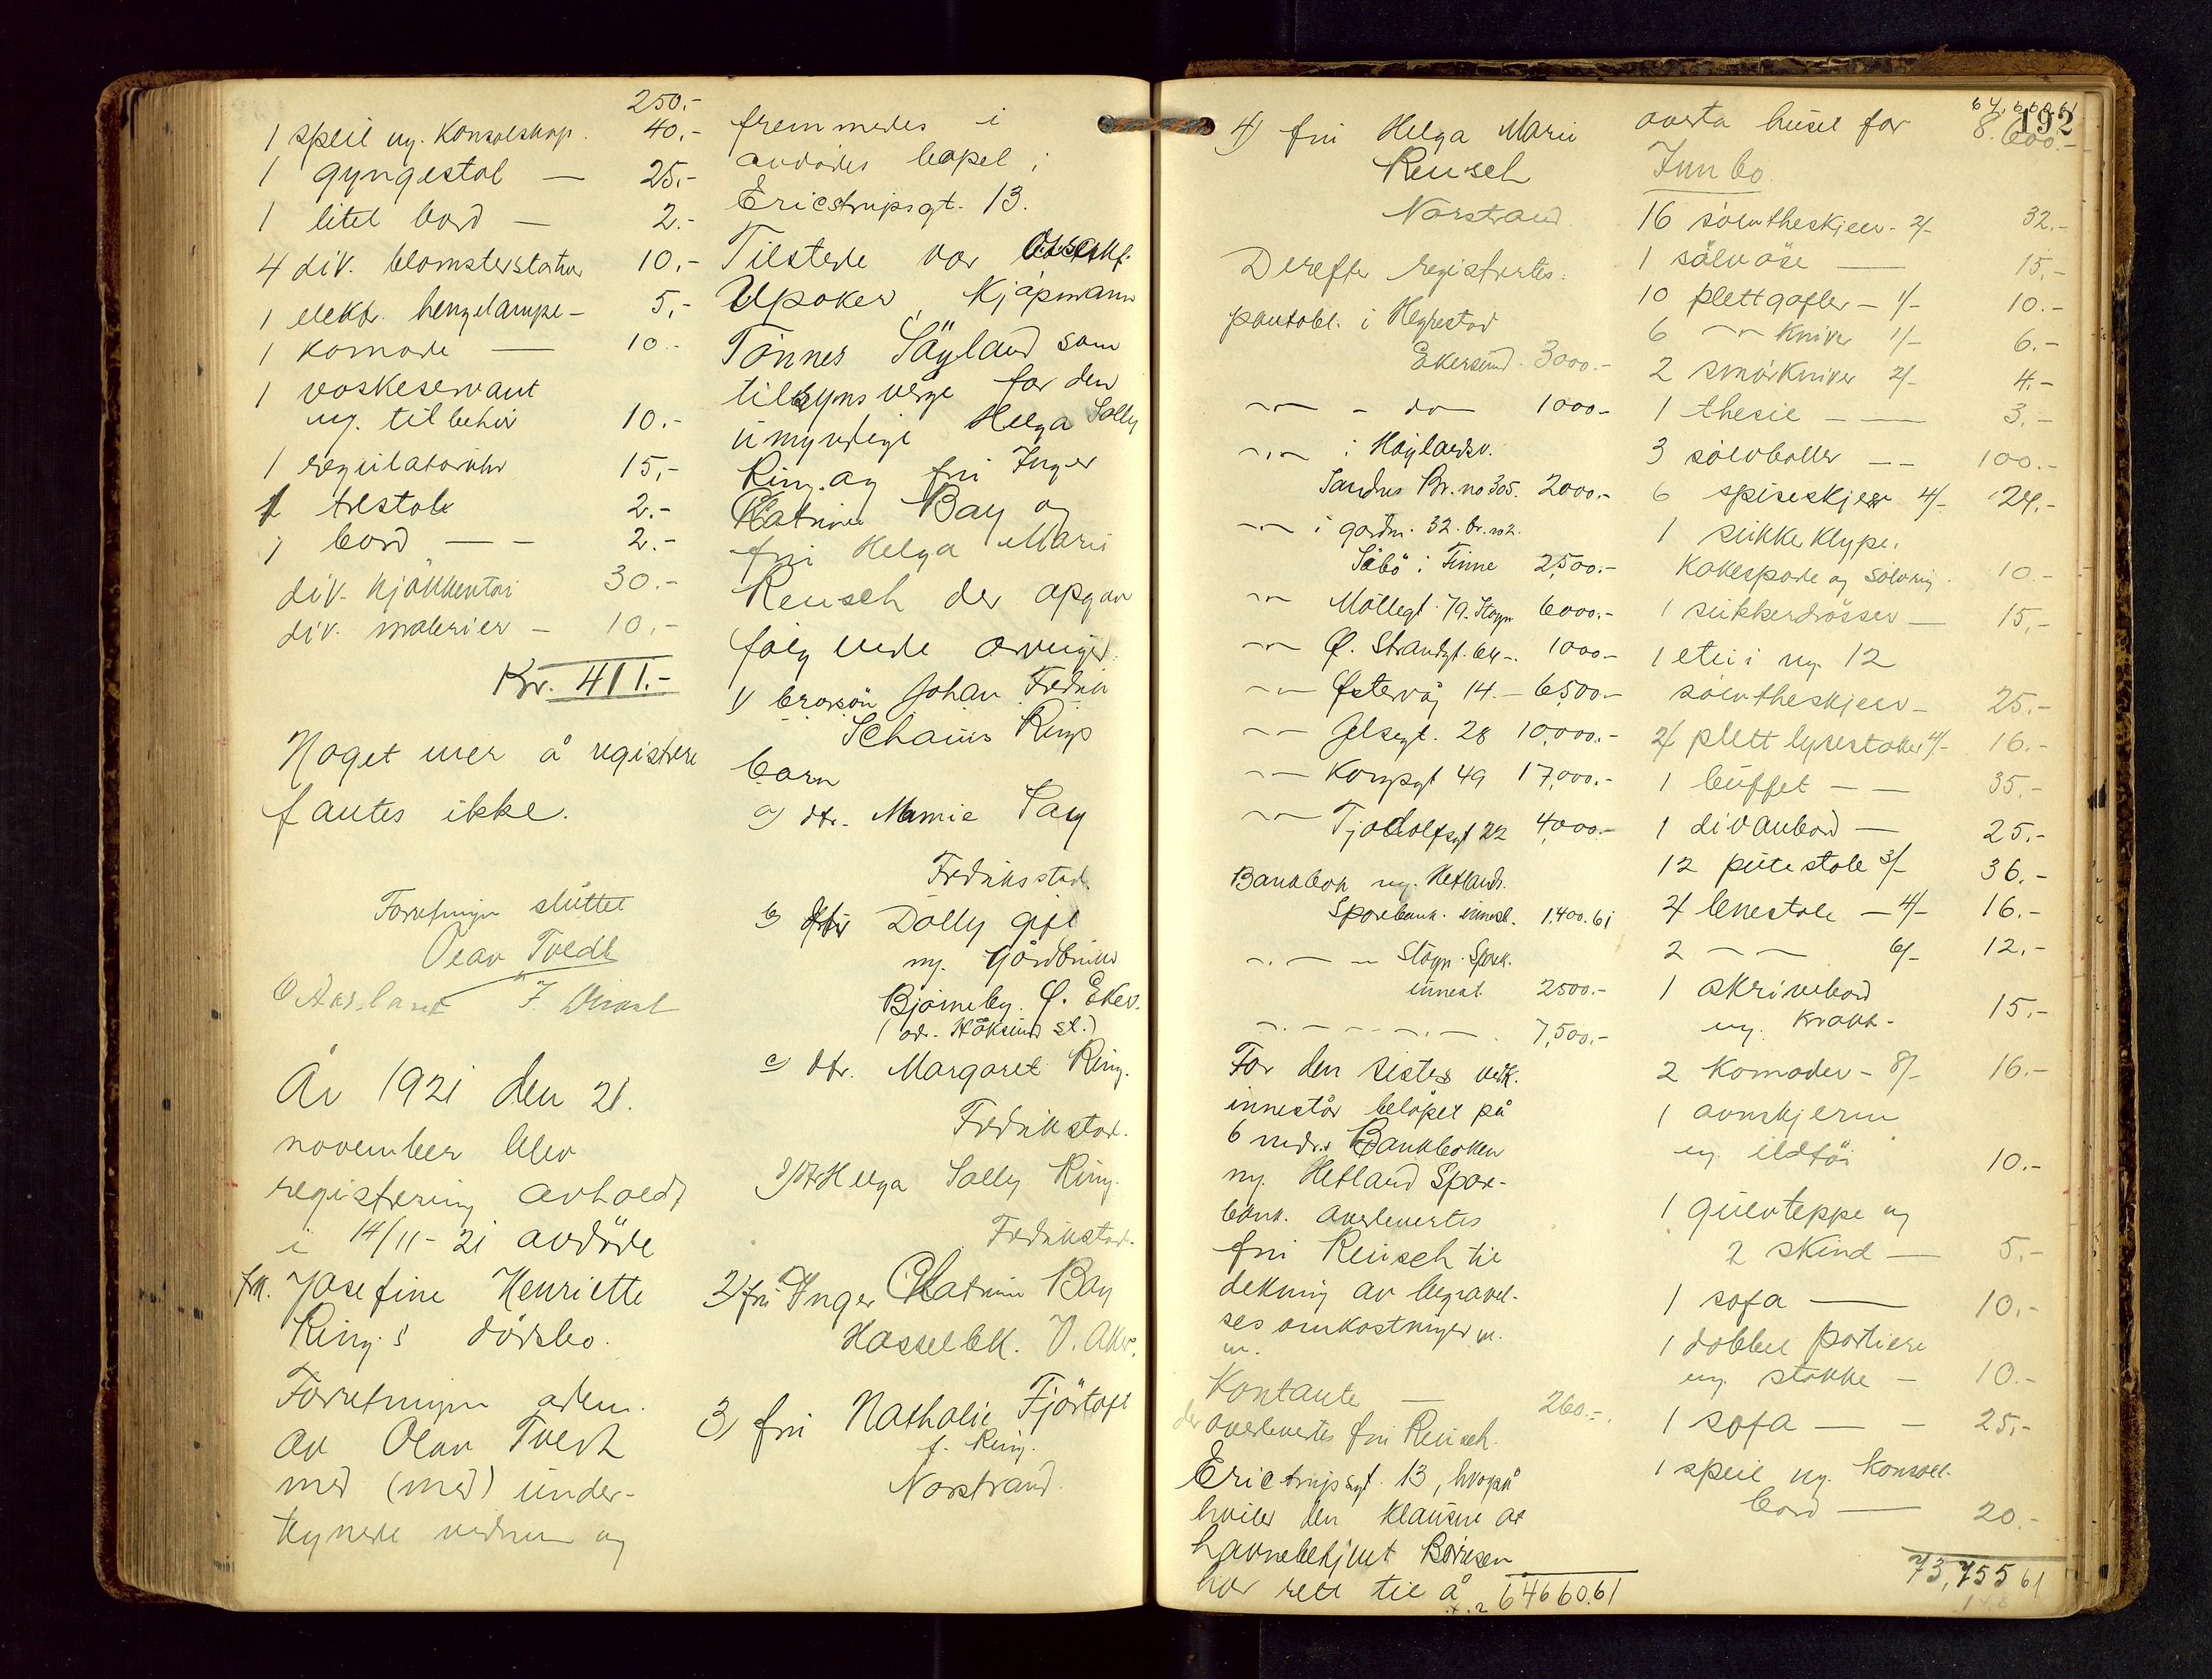 250.-
1 speil og. Konsolskap. 40,-
1 gyngestol — 25.-
1 litet bord — 2.-
4 div. blomsterstativ 10,-
1 elektr. hengelampe - 5,-
1 komode — 10.-
1 vaskeservant
og. tilbehör 10.-
1 regulatoruhr 15,-
1 trestol 2.-
1 bord — - 2.-
div. kjökkentöi 30.-
div. malerier - 10.-
Kr. 411.-
Noget mer å registrere
fantes ikke.
Forretningen sluttet
Olav Tvedt
År 1921 den 21.
november blev
registrering avholdt
i 14/11-21 avdöde
frk. Josefine Henriette
Ring's dödsbo.
Forretningen adm.
av Olav Tvedt
med (med) under-
tegnede vidner og
fremmedes i
avdödes bopel i
Ericstrupsgt. 13.
Tilstede var
Kjöpmann
Tönnes Söyland som
tilsynsverge for den
umyndige Helga Solly
Ring. og fru Inger
Katrine Bay og
fru Helga Marie
Reusch der opgav
fölgende arvinger:
1/ brorsön Johan Fredrik
Schanis Rings
barn
a) dtr. Mamie Say
Fredriksstad.
b) dtr Dolly gift
m. Gårdbruker
Björneby. Ö. Eker.
(adr. Höksund st.)
c) dtr. Margaret Ring.
Fredrikstad.
d) dtr Helga Solly Ring.
Fredrikstad.
2/ fru Inger Katrine Bay
Hasselbk. V. Aker.
3) fru Nathalie Fjörtoft
f. Ring.
Norstrand.
4) fru Helga Marie
Reusch
Norstrand.
Derefter registrertes:
pantobl. i Hegrestad
Ekersund. 3000.-
-"- - do - 1000.-
-"- i Höylandsv.
Sandnes Br. no 305. 2000.-
-"- i gårdn. 32. br. no 2.
Säbö i Tinne 2,500.-
-"- Möllegt. 79. Stavgr 6000.-
-"- Ö. Strandgt. 64 -. 1000.-
-"- Östervåg 14. - 6500.-
-"- Jelsegt. 28 10,000.-
-"- Kongsgt 49 17,000.-
-"- Tjodolfsgt 22 4,000.-
Bankbok og. Hetlands.
Sparebank. innest. 1,400.61
-"- - Stavgr. Spark.
innest. 2500.-
-"- - -"- 7,500.-
For den sistes vedk.
innestår belöpet på
6 mdr. Bankboken
og. Hetland Spare-
bank. overlevertes
fru Reusch til
dekning av begravel-
ses omkostninger m.
m.
Kontanter — 260.-
der overlevertes fru Reusch.
Ericstrupsgt. 13, hvorpå
hviler den klausul at
havnebetjent Börresen
har rett til å
64660.61
192
64,660.61
overta huset for 8.600.-
Innbo.
16 sölvtheskjeer - 2/- 32.-
1 sölvöse — 15,-
10 plettgafler - 1/- 10.-
6 -"- kniver 1/- 6.-
2 smörkniver 2/- 4.-
1 thesil - — 3.-
3 sölvboller - - 100.-
6 spiseskjeer 4/- 24.-
1 sukkerklype.
Kakespade og sölvring. 10.-
1 sukkerdrösser — 15,-
1 etui og. 12
sölvtheskjeer - 25.-
4 plett lysestaker 4/- 16.-
1 buffet - — 35.-
1 divanbord — 25.-
12 pütestole 3/- 36.-
4 lenestole - 4/- 16.-
2 -"- 6/- 12.-
1 skrivebord
og. krakk - 15,-
2 komoder - 8/- 16.-
1 ovnskjerm
og. ildtöi 10.-
1 gulvteppe og
2 skind — 5.-
1 sofa — 10.-
1 dobbel portiere
og. stokke - 10.-
1 sofa — - 25,-
1 speil og. konsoll-
bord — 20.-
73,755 61